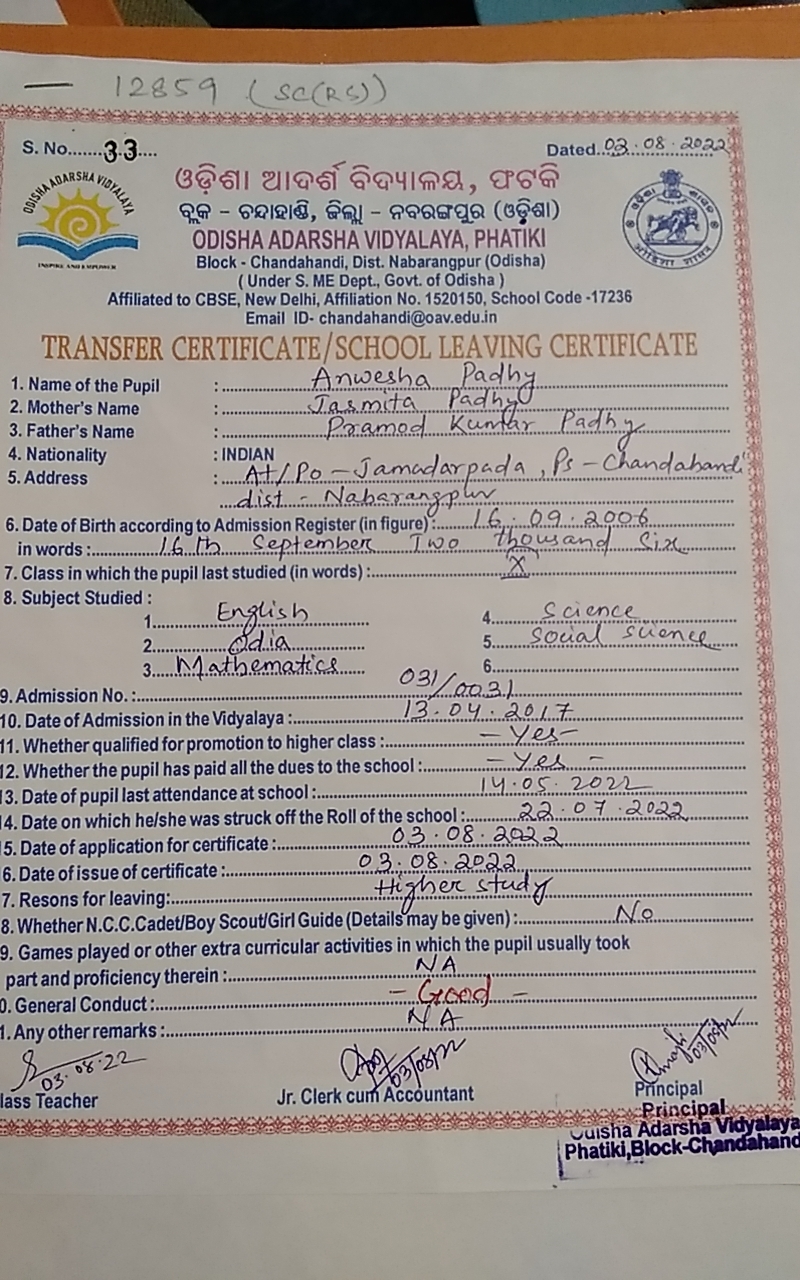 — 12859 (SC(RS))
S. No.......33....
Dated...03.08.2022
ODISHA ADARSHA VIDYALAYA
INSPIRE AND EMPOWER
ଓଡ଼ିଶା ଆଦର୍ଶ ବିଦ୍ୟାଳୟ, ଫଟକି
ବ୍ଲକ – ଚନ୍ଦାହାଣ୍ଡି, ଜିଲ୍ଲା – ନବରଙ୍ଗପୁର (ଓଡ଼ିଶା)
ODISHA ADARSHA VIDYALAYA, PHATIKI
Block - Chandahandi, Dist. Nabarangpur (Odisha)
( Under S. ME Dept., Govt. of Odisha )
Affiliated to CBSE, New Delhi, Affiliation No. 1520150, School Code -17236
Email ID- chandahandi@oav.edu.in
TRANSFER CERTIFICATE/SCHOOL LEAVING CERTIFICATE
1. Name of the Pupil : Anwesha Padhy
2. Mother's Name : Jasmita Padhy
3. Father's Name : Pramod Kumar Padhy
4. Nationality : INDIAN
5. Address : At/Po – Jamadarpada, Ps – Chandahandi
dist – Nabarangpur
6. Date of Birth according to Admission Register (in figure) : 16.09.2006
in words : 16th September Two thousand Six
7. Class in which the pupil last studied (in words) : X
8. Subject Studied :
1. English 4. Science
2. Odia 5. Social science
3. Mathematics 6.
9. Admission No. : 031/0031
10. Date of Admission in the Vidyalaya : 13.04.2017
11. Whether qualified for promotion to higher class : – Yes –
12. Whether the pupil has paid all the dues to the school : – Yes –
13. Date of pupil last attendance at school : 14.05.2022
14. Date on which he/she was struck off the Roll of the school : 22.07.2022
5. Date of application for certificate : 03.08.2022
6. Date of issue of certificate : 03.08.2022
7. Resons for leaving: Higher study
8. Whether N.C.C.Cadet/Boy Scout/Girl Guide (Details may be given) : No
9. Games played or other extra curricular activities in which the pupil usually took
part and proficiency therein : NA
0. General Conduct : – Good –
1. Any other remarks : NA
03.08.22 03/08/22 03/08/22
lass Teacher Jr. Clerk cum Accountant Principal
Principal
Odisha Adarsha Vidyalaya
Phatiki,Block-Chandahand